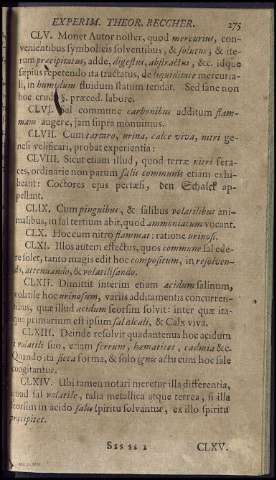 EXPERIM. THEOR. BECCHER. 275
CLV. Monet Autor noster, quod mercurius, con-
venientibus symbolicis solventibus, & solutus, & ite-
rum præcipitatus, adde, digestus, abstractus, &c. idque
sæpius repetendo ita tractatus, de liquiditate mercuria-
li, in humidum fluidum statum tendat. Sed sane non
hoc præced. labore.
CLVI. Sal commune carbonibus additum flam-
mam augere, jam supra monuimus.
CLVII. Cum tartaro, urina, calce viva, nitri ge-
neris vilificari, probat experientia:
CLVIII. Sicut etiam illud, quod terræ nitri fera-
ces, ordinarie non parum salis communis etiam exhi-
beant: Coctores ejus pertæsi, den Schalck ap-
pellant.
CLIX. Cum pinguibus, & salibus volatilibus ani-
malibus, in sal tertium abit, quod ammoniacum vocant.
CLX. Hoc cum nitro flammat: ratione urinosi.
CLXI. Illos autem effectus, quos commune sal ede-
re solet, tanto magis edit hoc compositum, in resolvendo,
attenuando, & volatilisando.
CLXII. Dimittit interim etiam acidum salinum,
volatile hoc urinosum, variis additamentis concurren-
tibus, quæ illud acidum seorsim solvit: inter quæ ita-
que primarium est ipsum sal alcali, & Calx viva.
CLXIII. Deinde resolvit quadantenus hoc acidum
volatile suo, etiam ferrum, hæmatites, cadmia &c.
Quando ita sicca forma, & solo igne actu cum hoc sale
coguntur.
CLXIV. Ubi tamen notari meretur illa differentia,
quod sal volatile, talia metallica atque terrea, si illa
seorsim in acido salis spiritu solvantur, ex illo spiritu
præcipitet.
Sss ss 2 CLXV.